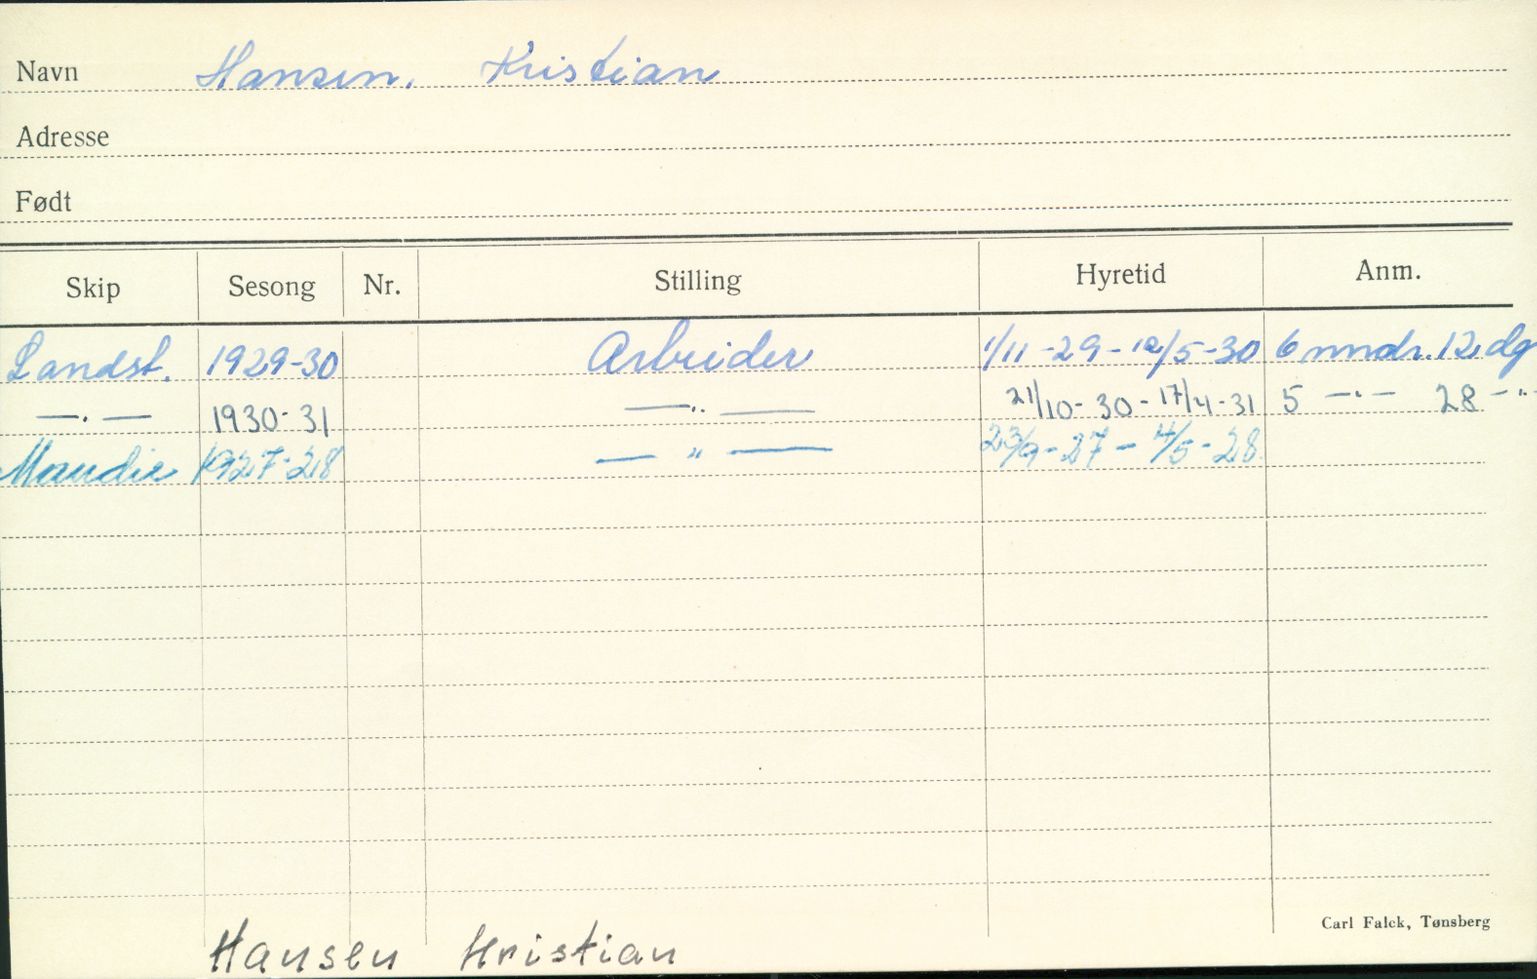 Navn Hansen, Kristian
Adresse
Født
Skip Sesong Nr. Stilling Hyretid Anm.
Landst. 1929-30 Arbeider 1/11-29-12/5-30 6 mndr. 12 dg
—.— 1930-31 —"— 21/10-30-17/4-31 5 —"— 28 —"—
Maudie 1927-28 —"— 23/9-27-4/5-28
Carl Falck, Tønsberg
Hansen Kristian